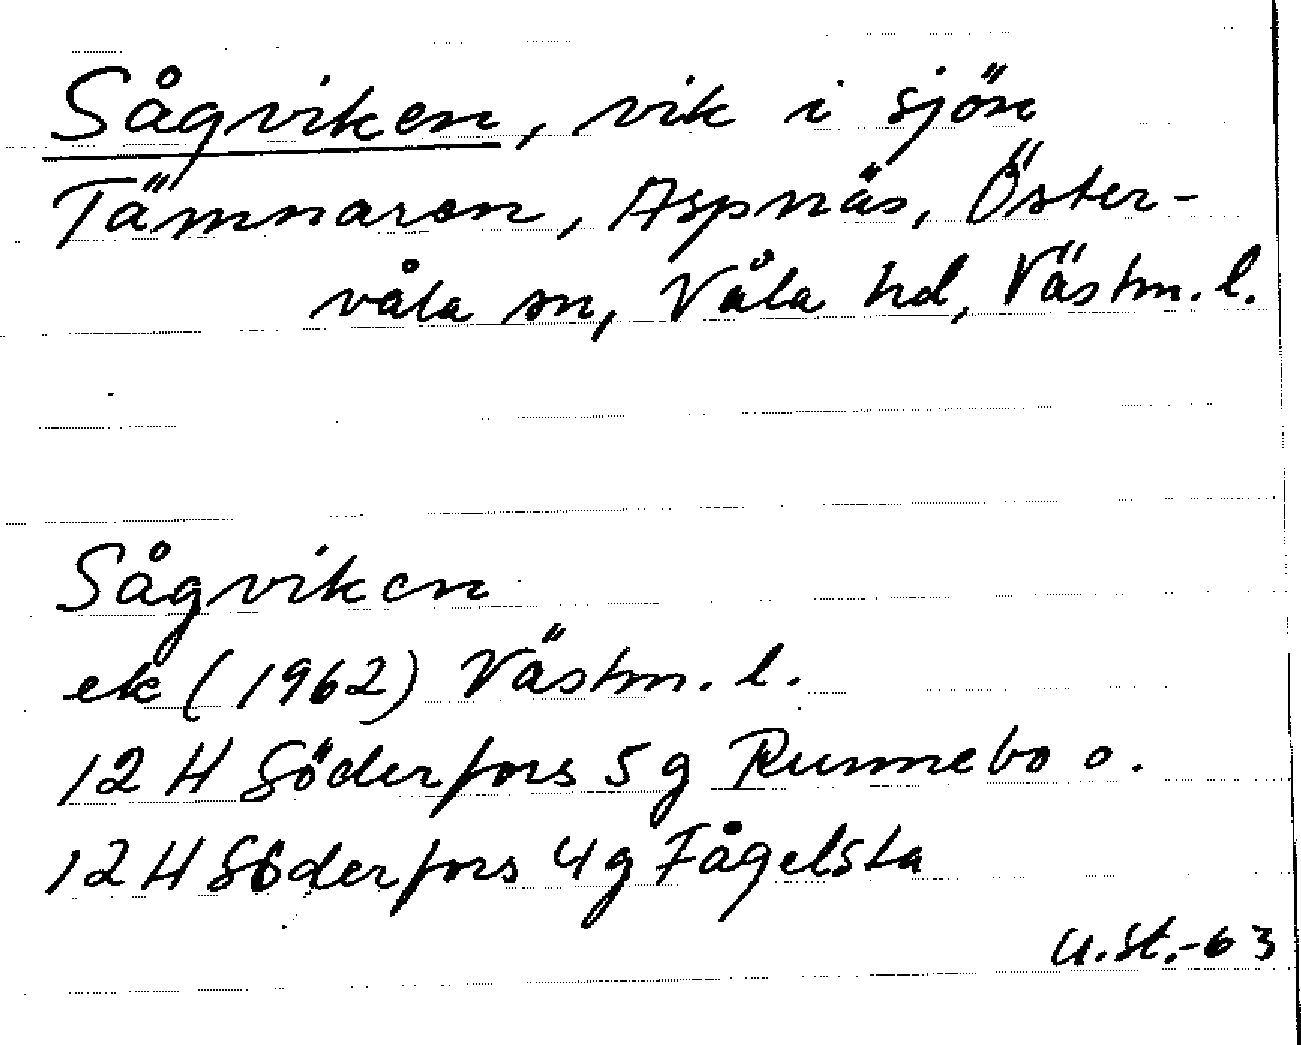 Sågviken, vik i sjön
Tämnaren, Aspnäs, Öster-
våla sn, Våla hd, Västm. l.
Sågviken
ek (1962) Västm. l.
12 H Söderfors 5 g Runnebo o.
12 H Söderfors 4 g Fågelsta
U.St.-63